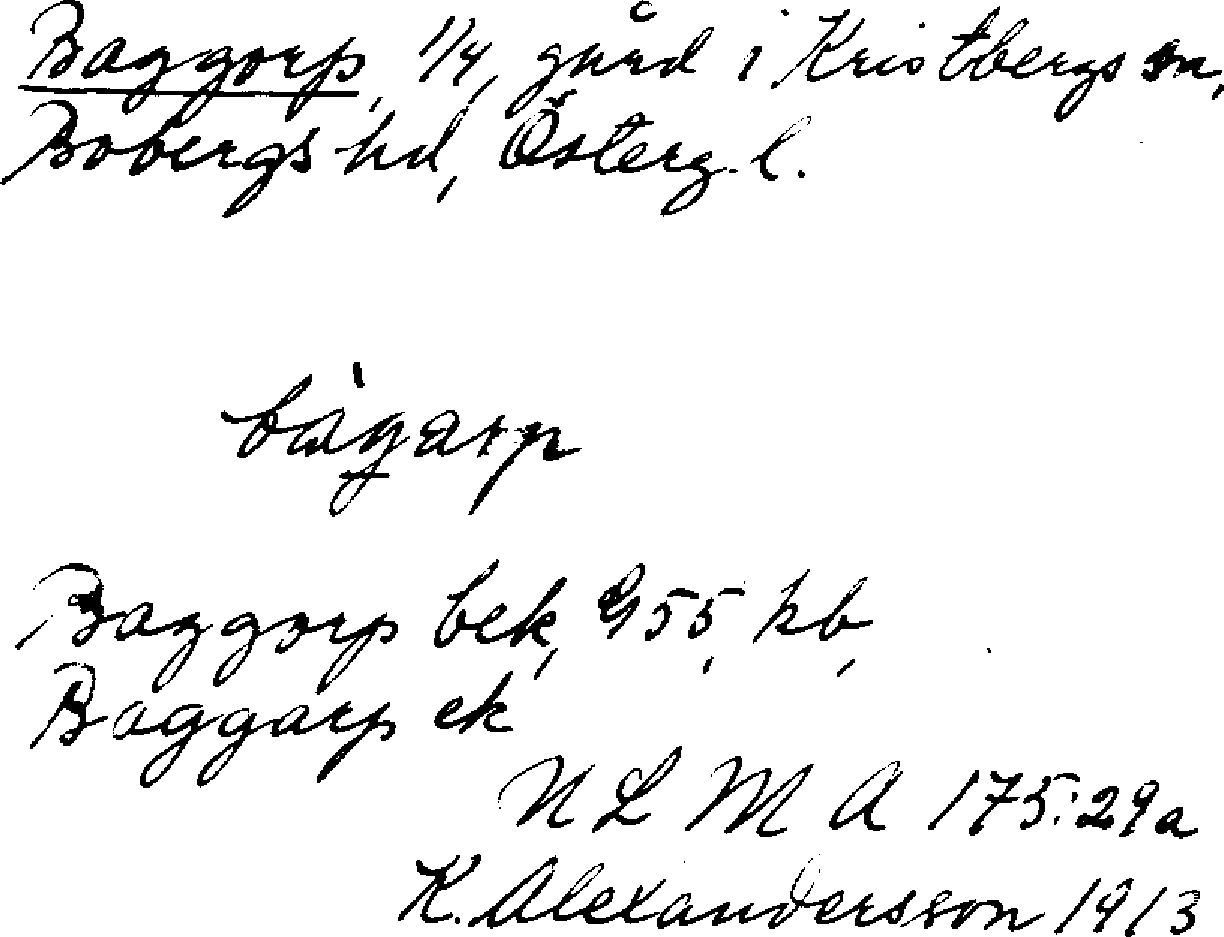 Baggorp, 1/4, gård i Kristbergs sn,
Bobergs hd, Österg. l.
bàgarp
Baggorp bek, G55, kb,
Baggarp ek
N L M A 175:29a
K. Alexandersson 1913